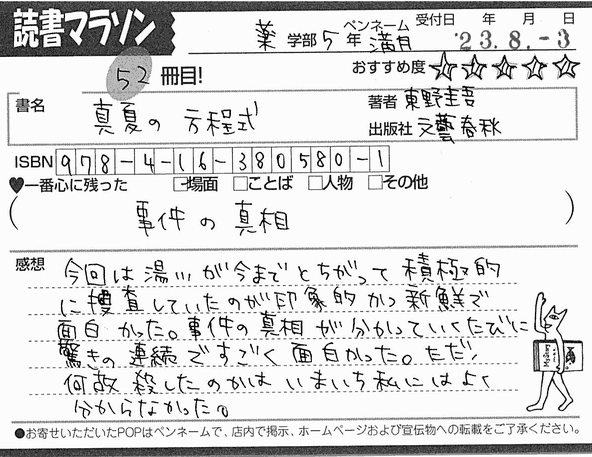 読書マラソン
薬 学部 5年 ペンネーム 満月 受付日 年 月 日
'23.8.-3
52 冊目!
おすすめ度 ☆☆☆☆☆
書名 真夏の方程式
著者 東野圭吾
出版社 文藝春秋
ISBN 978-4-16-380580-1
♥一番心に残った □場面 □ことば □人物 □その他
( 事件の真相 )
感想 今回は湯川が今までとちがって積極的
に捜査していたのが印象的かつ新鮮で
面白かった。事件の真相が分かっていくたびに
驚きの連続ですごく面白かった。ただ、
何故殺したのかはいまいち私にはよく
分からなかった。
●お寄せいただいたPOPはペンネームで、店内で掲示、ホームページおよび宣伝物への転載をご了承ください。